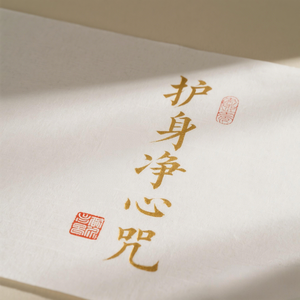 护身净心咒